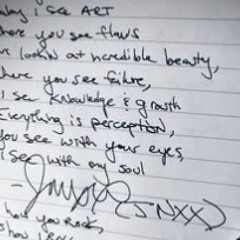 I see ART
where you see flaws
at incredible beauty,
where you see failure,
I see knowledge & growth
Everything is perception,
you see with your eyes,
I see with my soul
(JNXX)
how you Rock,